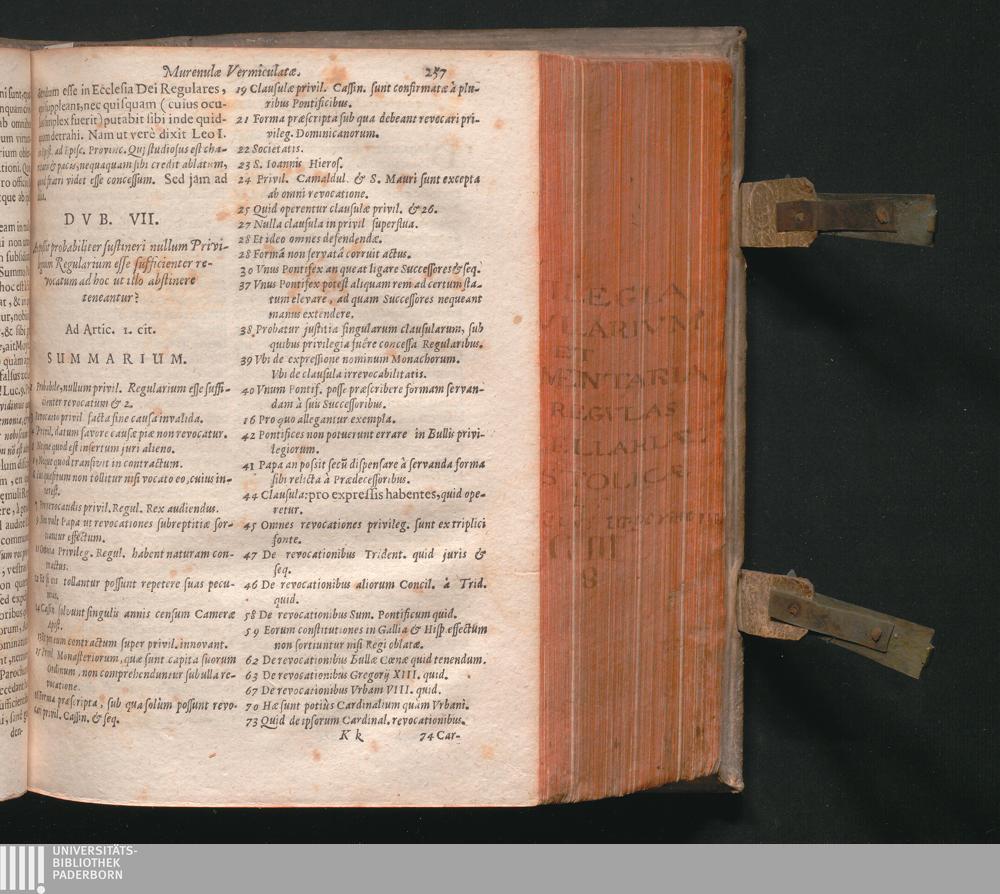 Murenulæ Vermiculatæ. 257
esse in Ecclesia Dei Regulares,
suppleant, nec quisquam (cuius ocu-
simplex fuerit) putabit sibi inde quid-
detrahi. Nam ut verè dixit Leo I.
ad Episc. Provinc. Qui studiosus est cha-
& pacis, nequaquam sibi credit ablatum,
fratri videt esse concessum. Sed jam ad
DVB. VII.
probabiliter sustineri nullum Privi-
Regularium esse sufficienter re-
vocatum ad hoc ut illo abstinere
teneantur?
Ad Artic. 1. cit.
SUMMARIUM.
Probabile, nullum privil. Regularium esse suffi-
cienter revocatum & 2.
privil. facta sine causa invalida.
Privil. datum favore causæ piæ non revocatur.
Neque quod est insertum juri alieno.
Neque quod transivit in contractum.
quæsitum non tollitur nisi vocato eo, cuius in-
terest.
revocandis privil. Regul. Rex audiendus.
vult Papa ut revocationes subreptitiæ sor-
tiantur effectum.
Omnia Privileg. Regul. habent naturam con-
tractus.
tollantur possunt repetere suas pecu-
nias.
Cassin solvunt singulis annis censum Cameræ
Apost.
contractum super privil. innovant.
Privil. Monasteriorum, quæ sunt capita suorum
Ordinum, non comprehenduntur sub ulla re-
vocatione.
Forma præscripta, sub qua solùm possunt revo-
cari privil. Cassin. & seq.
19 Clausulæ privil. Cassin. sunt confirmatæ à plu-
ribus Pontificibus.
21 Forma præscripta sub qua debeant revocari pri-
vileg. Dominicanorum.
22 Societatis.
23 S. Ioannis Hieros.
24 Privil. Camaldul. & S. Mauri sunt excepta
ab omni revocatione.
25 Quid operentur clausulæ privil. & 26.
27 Nulla clausula in privil superflua.
28 Et ideo omnes defendendæ.
28 Formâ non servatâ corruit actus.
30 Vnus Pontifex an queat ligare Successores & seq.
37 Vnus Pontifex potest aliquam rem ad certum sta-
tum elevare, ad quam Successores nequeant
manus extendere.
38 Probatur justitia singularum clausularum, sub
quibus privilegia fuêre concessa Regularibus.
39 Vbi de expressione nominum Monachorum.
Vbi de clausula irrevocabilitatis.
40 Vnum Pontif. posse præscribere formam servan-
dam à suis Successoribus.
16 Pro quo allegantur exempla.
42 Pontifices non potuerunt errare in Bullis privi-
legiorum.
41 Papa an possit secũ dispensare à servanda forma
sibi relicta à Prædecessoribus.
44 Clausula: pro expressis habentes, quid ope-
retur.
45 Omnes revocationes privileg. sunt ex triplici
fonte.
47 De revocationibus Trident. quid juris &
seq.
46 De revocationibus aliorum Concil. à Trid.
quid.
58 De revocationibus Sum. Pontificum quid.
59 Eorum constitutiones in Gallia & Hisp. effectũm
non sortiuntur nisi Regi oblatæ.
62 De revocationibus Bullæ Cœnæ quid tenendum.
63 De revocationibus Gregorij XIII. quid.
67 De revocationibus Vrbani VIII. quid.
70 Hæ sunt potiùs Cardinalium quàm Vrbani.
73 Quid de ipsorum Cardinal. revocationibus.
K k 74 Car-
ILEGIA
VLARIVM
ET
MENTARIA
REGVLAS
ELLARIÆ
STOLICÆ
UNIVERSITÄTS-
BIBLIOTHEK
PADERBORN